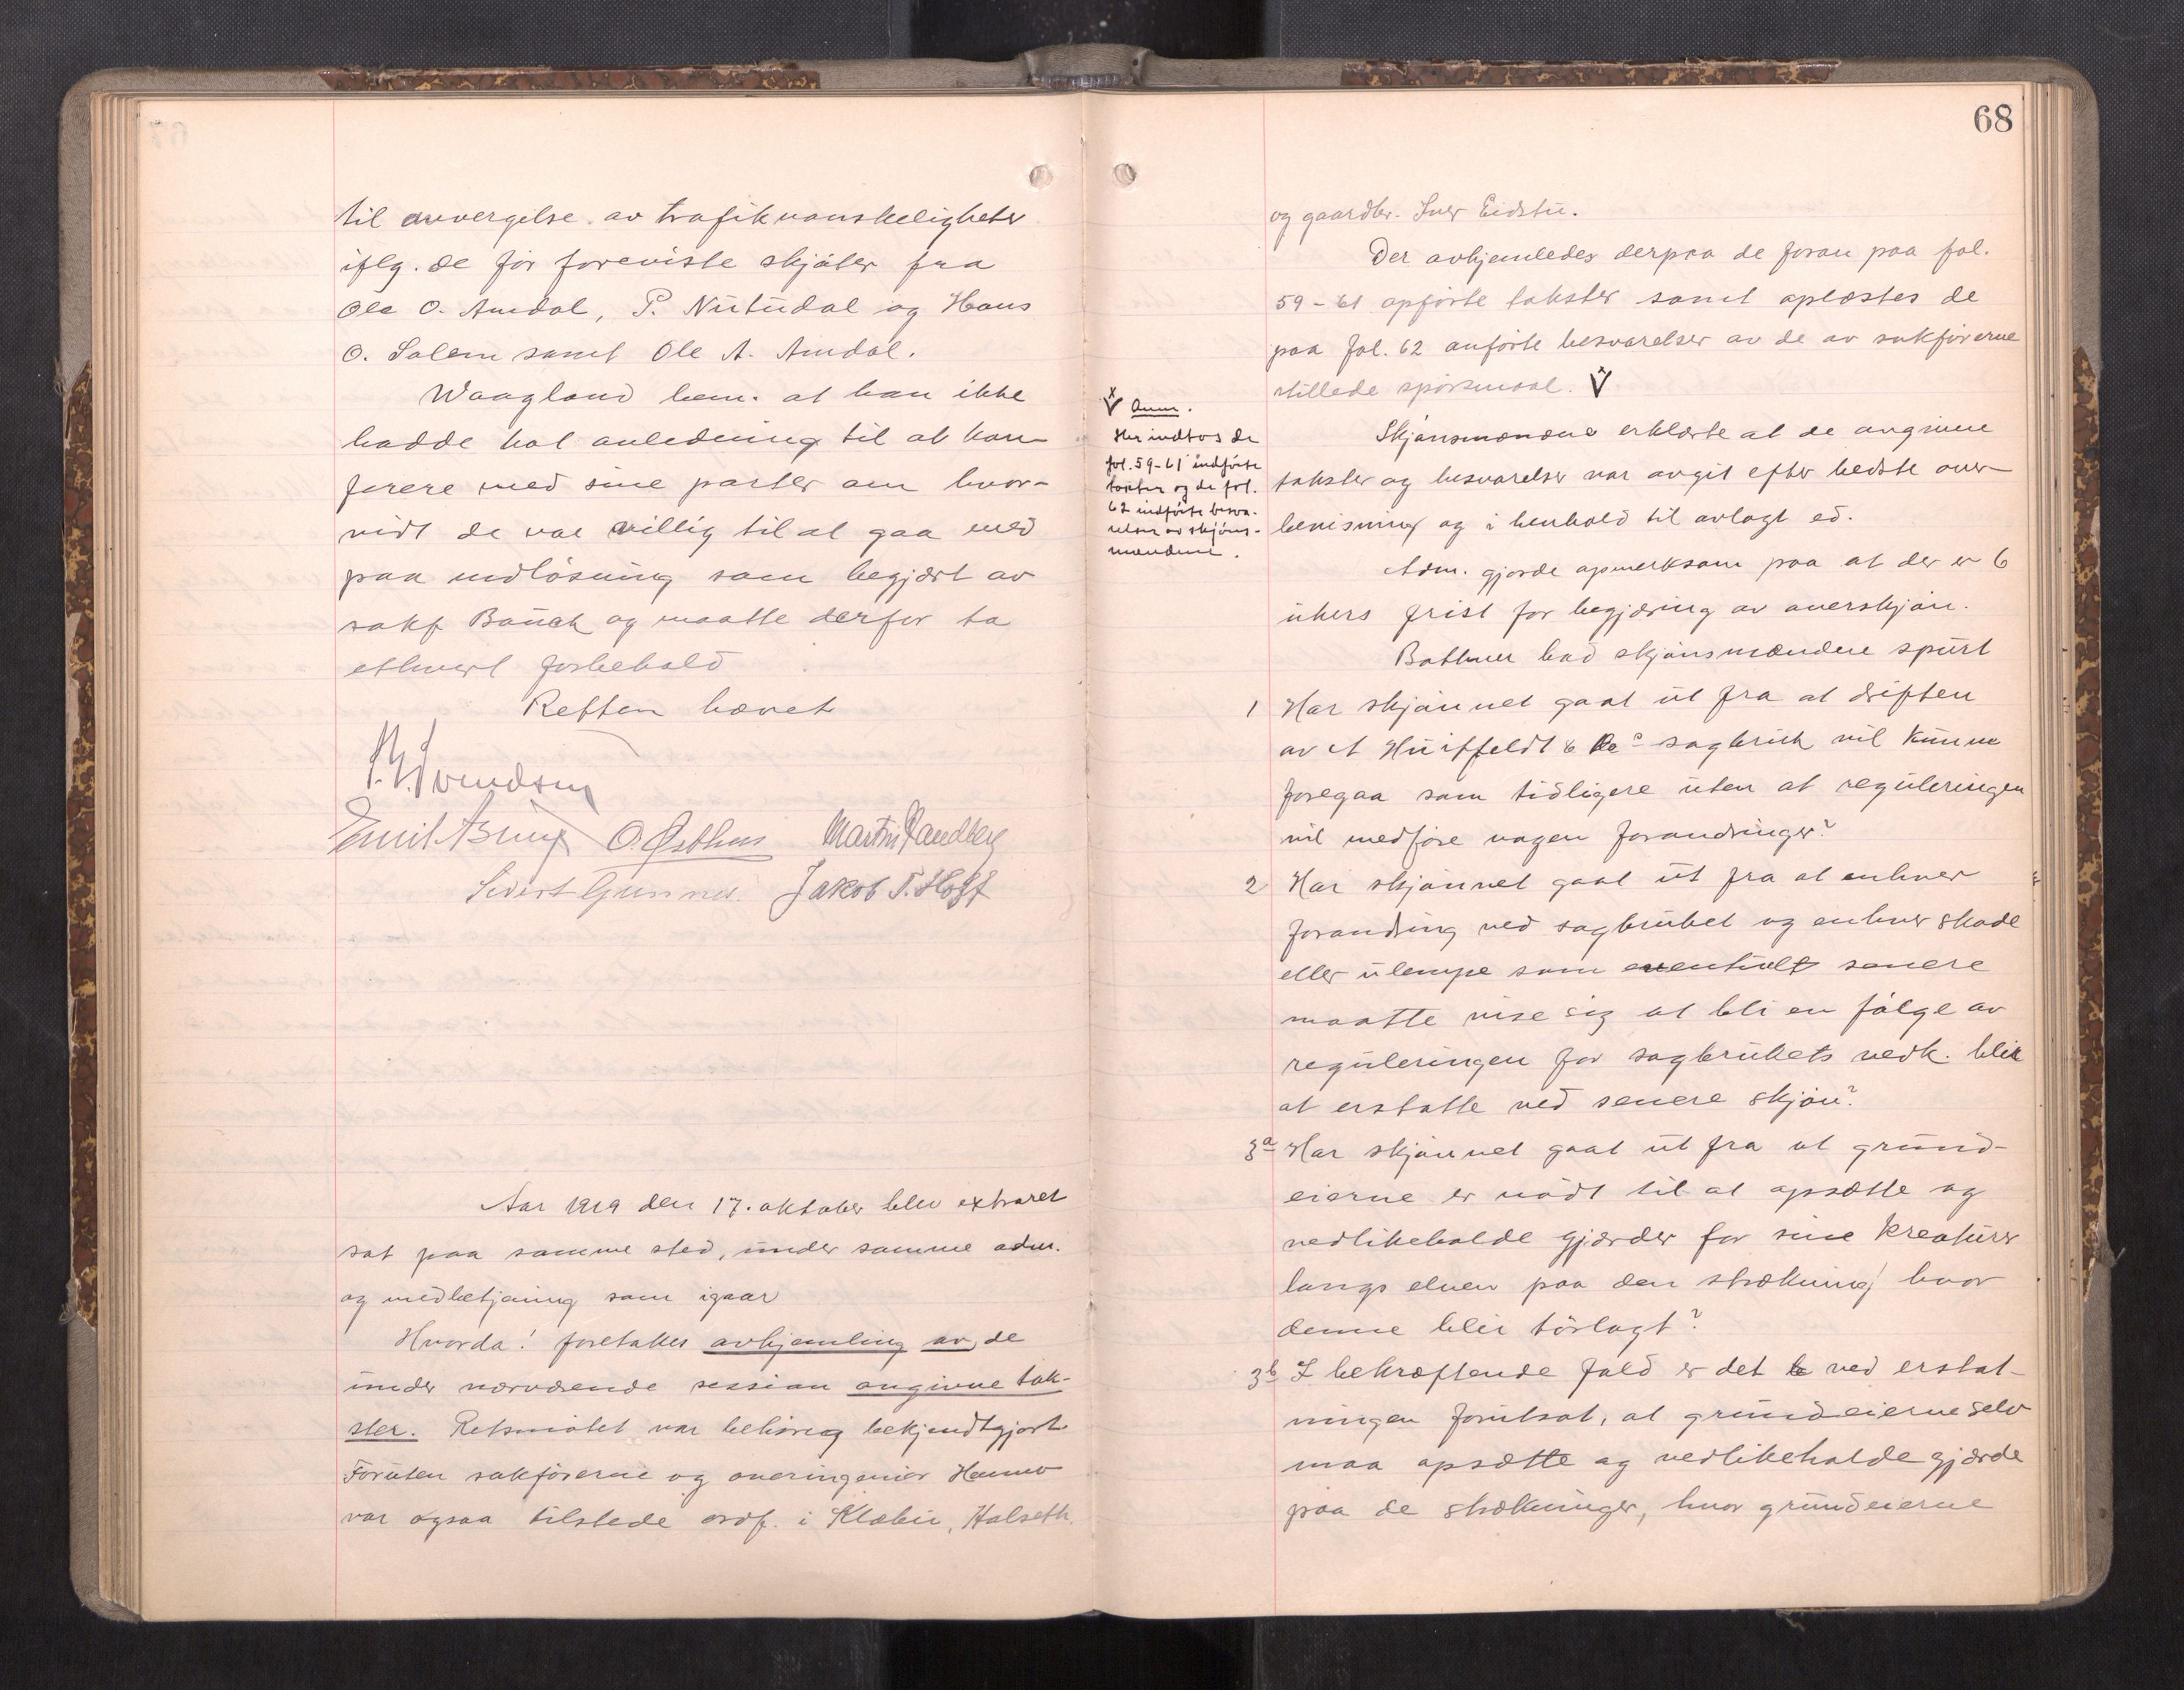 til avvergelse av trafikvanskeligheter
iflg. de før foreviste skjøter fra
Ole O. Amdal, P. Nututdal og Hans
O. Solem samt Ole A. Amdal.
Waagland bem. at han ikke
hadde hat anledning til at kon-
ferere med sine parter om hvor-
vidt de var villig til at gaa med
paa indløsning som begjært av
sakf Bauck og maatte derfor ta
ethvert forbehold
Retten hævet
Svendsen
O. Østhus Martin Sandberg
Sivert Jakob T. Hoff
Aar 1919 den 17. oktober blev extraret
sat paa samme sted, under samme adm.
og medbetjening som igaar
Hvorda! foretakes avhjemling av de
under nærværende session avgivne tak-
ster. Retsmøtet var behørig bekjendtgjort
Foruten sakførerne og overingeniør
var ogsaa tilstede ordf. i Klæbu, Halseth
68
og gaardbr. Iver Eidstu.
Der avhjemledes derpaa de foran paa fol.
59-61 opførte takster samt oplæstes de
paa fol. 62 anførte besvarelser av de av sakførerne
stillede spørsmaal. V
V Anm.
Her indtos de
fol. 59-61 indførte
takster og de fol.
62 indførte besva-
relser av skjøns-
mændene.
Skjønsmændene erklærte at de avgivne
takster og besvarelser var avgit efter bedste over-
bevisning og i henhold til avlagt ed.
Adm. gjorde opmerksom paa at der er 6
ukers frist for begjæring av overskjøn.
Bothner bad skjønsmændene spurt
1 Har skjønnet gaat ut fra at driften
av A Huitfeldt & Co sagbruk vil kunne
foregaa som tidligere uten at reguleringen
vil medføre nogen forandringer?
2 Har skjønnet gaat ut fra at enhver
forandring ved sagbruket og enhver skade
eller ulempe som eventuelt senere
maatte vise sig at bli en følge av
reguleringen for sagbrukets vedk. blir
at erstatte ved senere skjøn?
3a Har skjønnet gaat ut fra at grund-
eierne er nødt til at opsætte og
vedlikeholde gjærder for sine kreaturer
langs elven paa den strækning hvor
denne blir tørlagt?
3b I bekræftende fald er det ved erstat-
ningen forutsat, at grundeierne selv
maa opsætte og vedlikeholde gjærde
paa de strækninger, hvor grundeierne